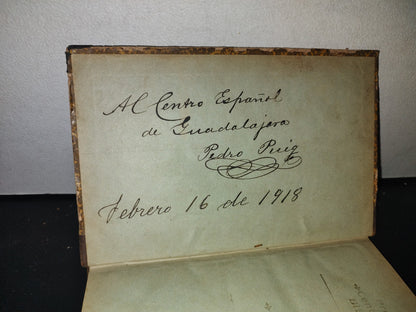 Al Centro Español
de Guadalajara
Pedro Puig
Febrero 16 de 1918